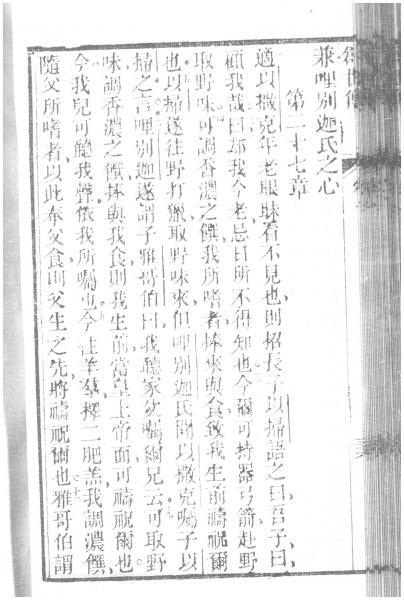 兼哩別迦氏之心
第二十七章
適以撒克年老眼昧看不見也則招長子以掃語之曰吾子曰
顧我哉曰却我今老忌日所不得知也今爾可持器弓箭赴野
取野味可調香濃之饌我所嗜者捧來與食致我生前禱祝爾
也以掃遂往野打獵取野味來但哩別迦氏聞以撒克囑子以
掃之言哩別迦遂謂子雅哥伯曰我聽家父囑爾兄云可取野
味調香濃之饌捧與我食則我生前當皇上帝面可禱祝爾也
今我兒可聽我聲依我所囑也今往羊羣擇二肥羔我調濃饌
隨父所嗜者以此奉父食則父生之先將禱祝爾也雅哥伯謂